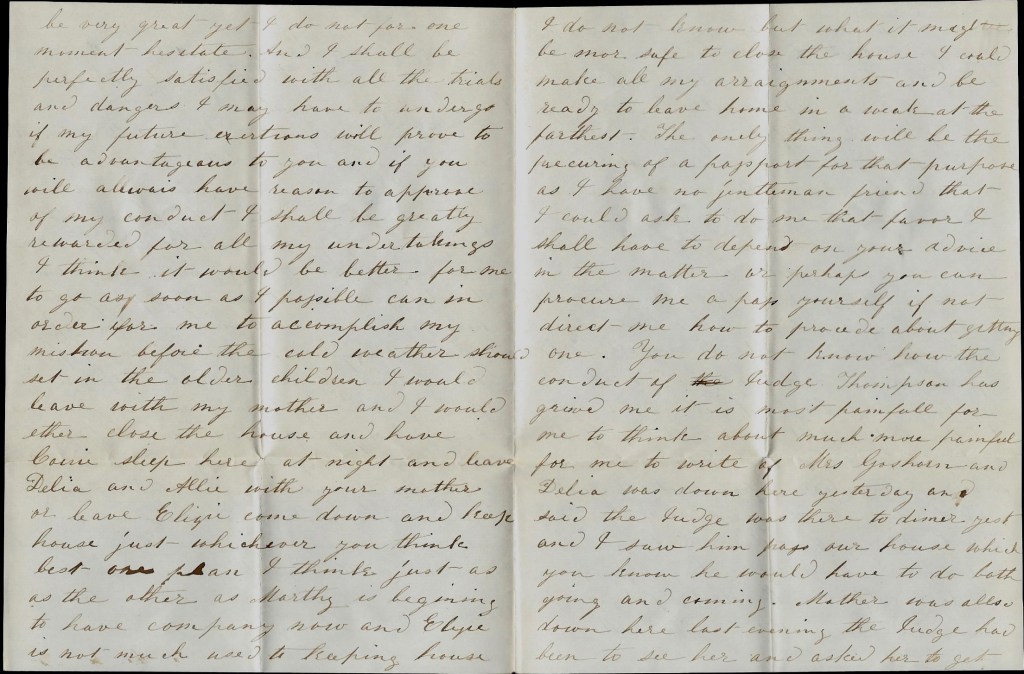 be very great yet I do not for one
moment hesitate. And I shall be
perfectly satisfied with all the trials
and dangers I may have to undergo
if my future exertions will prove to
be advantageous to you and if you
will alwais have reason to approve
of my conduct I shall be greatly
rewarded for all my undertakings
I think it would be better for me
to go as soon as I possible can in
order for me to accomplish my
mission before the cold weather should
set in the older children I would
leave with my mother and I would
ether close the house and have
sleep here at night and leave
Delia and Allie with your mother
or leave Elizie come down and keep
house just whichever you think
best one plan I think just as
as the other as Marthy is begining
to have company now and Elzie
is not much used to keeping house
I do not know but what it might
be mor safe to close the house I could
make all my arraignments and be
ready to leave home in a weak at the
farthest. The onely thing will be the
precuring of a passport for that purpose
as I have no jentleman friend that
I could ask to do me that favor I
shall have to depend on your advice
in the matter or perhaps you can
procure me a pass yourself if not
direct me how to procede about getting
one. You do not know how the
conduct of the Judge Thompson has
grived me it is most painfull for
me to think about much more painful
for me to write of Mrs Goshorn and
Delia was down here yesterday and
said the Judge was there to dinner yest
and I saw him pass our house which
you know he would have to do both
going and coming. Mother was allso
down here last evening the Judge had
been to see her and asked her to get